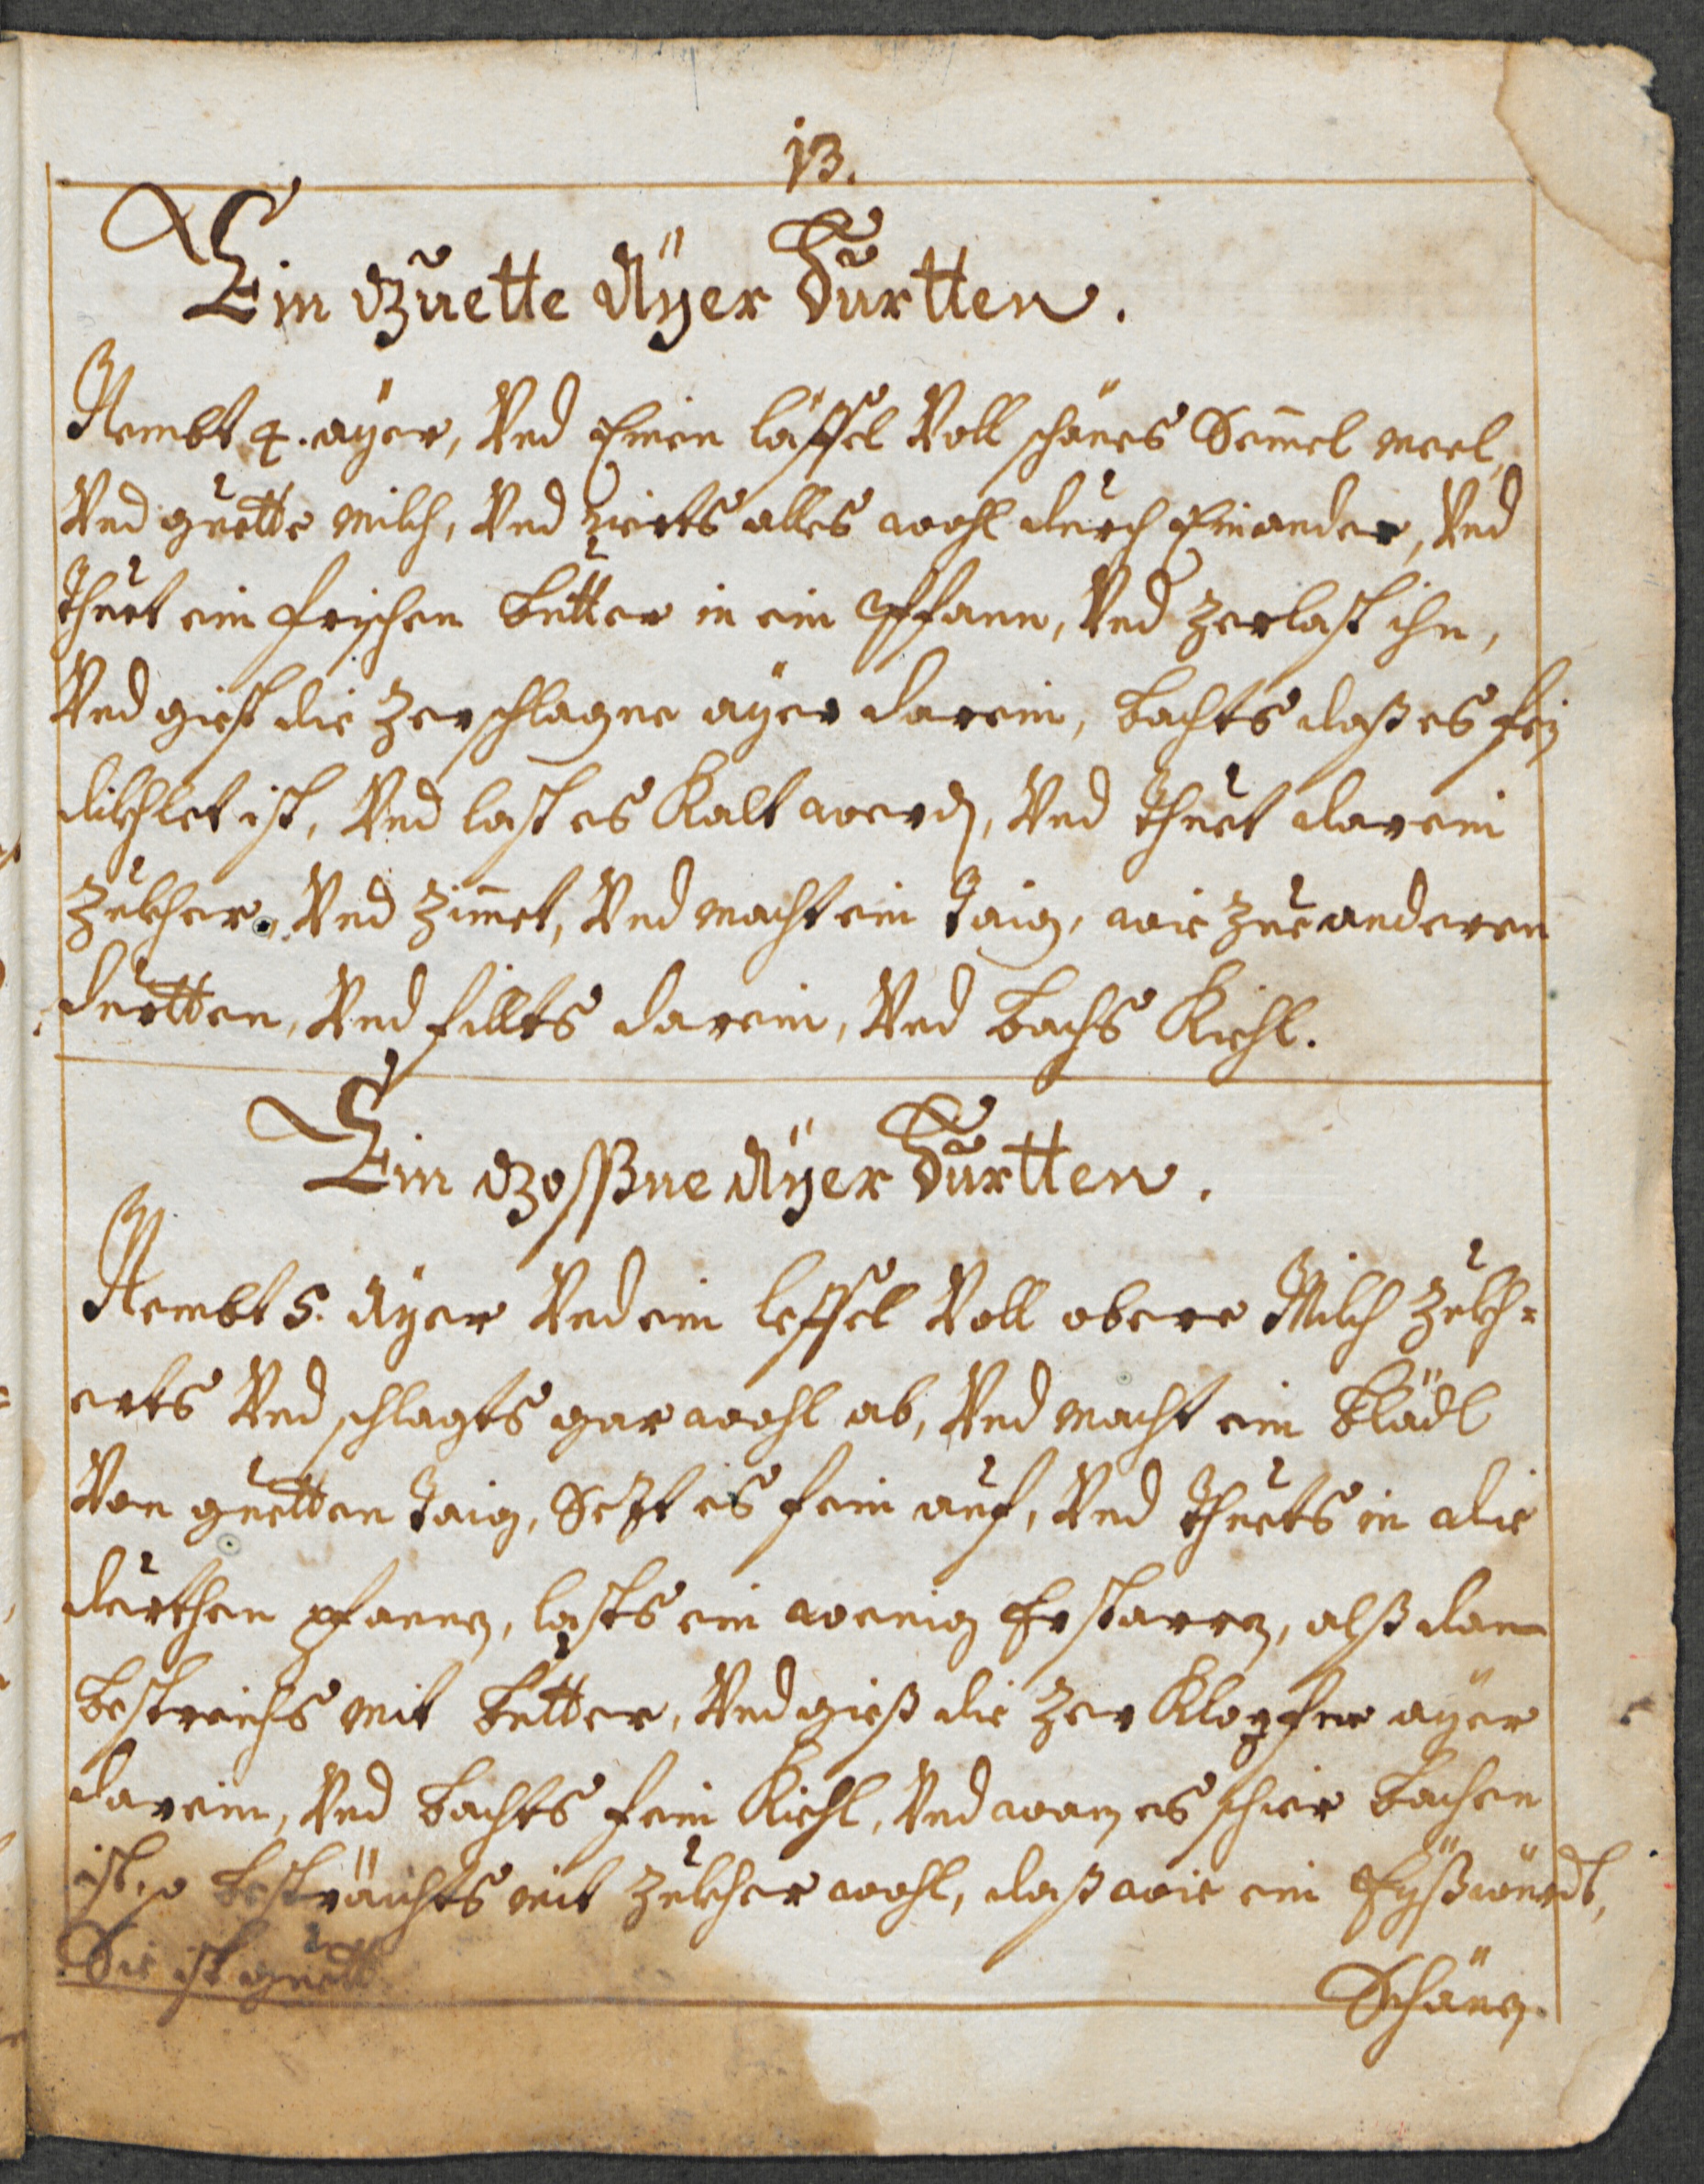 13.
Ein Guette Äÿer Durtten.
Nembt 4. aÿer, Vnd Einen läffel Voll schänes Sem̄el meel,
Vnd guette milch, Vnd rierts alles wohl durch Einander, Vnd
thuet ein frischen butter in ein Pfann, Vnd zerlast ihn,
Vnd giest die zerschlagne aÿer darein, bachts daß es fein
dikhlet ist, Vnd last es Kalt werden, Vnd thuet darein
Zukher, Vnd Zim̄et, Vnd macht ein taig, wie zue anderen
durtten, Vnd fillts darein, Vnd bachs Kiehl.
Ein Goßne Äÿer Durtten.
Nembt 5. Äÿer Vnd ein leffel Voll obere Milch Zukh=
erts Vnd schlagts gar wohl ab, Vnd macht ein blädl
Von guetten taig, Sezt es fein auf, Vnd thuets in die
durthen pfannen, lasts ein wenig Erstarren, alß dan
bestreichs mit butter, Vnd gieß die zer Klopfne aÿer
darein, Vnd bachts fein Kiehl, Vnd wan es schier bachen
ist, so besträichts mit Zukher wohl, daß wie ein Eÿß würdt,
Sie ist guett.
Schänen.